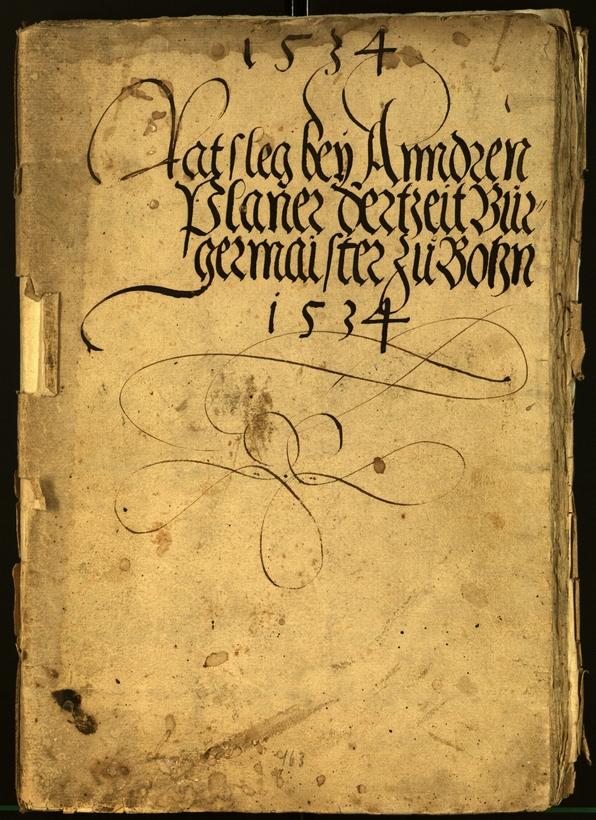 1534
Ratsleg bey Anndren
Planer dertzeit Bür-
germaister zu Botzn
1534
463